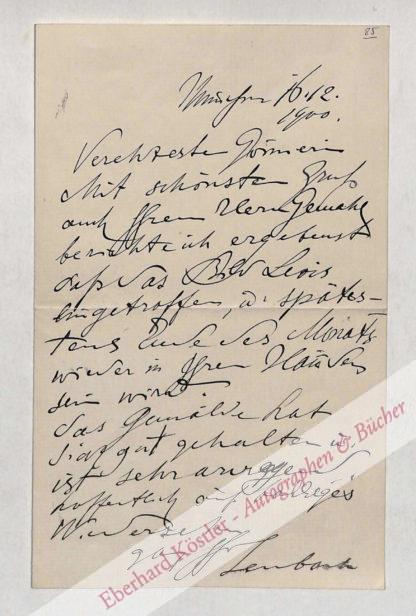 85
München 16.12.
1900.
Verehrteste Gönnerin
Mit schönstem Gruß
auch Ihrem Herrn Gemahl
berichte ich ergebenst
daß das Bild Leos
eingetroffen, u. späte=
tens Ende des Monats
wieder in Ihren Händen
sein wird.
das Gemälde hat
sich gut gehalten u.
ist sehr anregend
hoffentlich auf
Wiedersehen
ganz Ihr
Lenbach
Eberhard Köstler - Autographen & Bücher